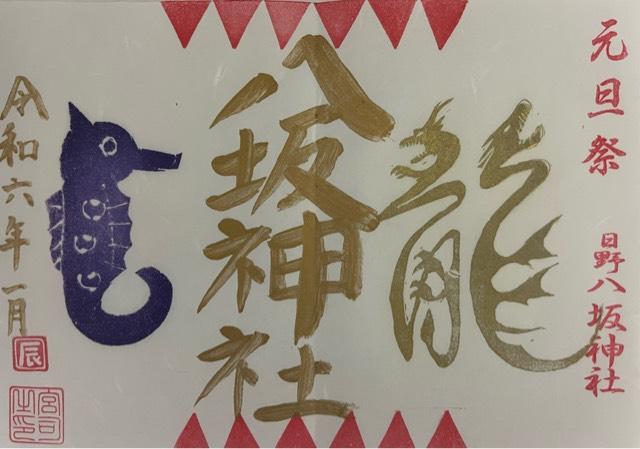 元旦祭 日野八坂神社
龍
八坂神社
令和六年一月
辰
宮司之印